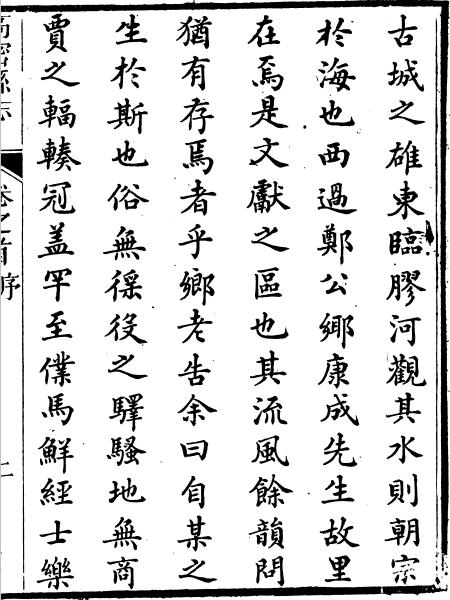 古城之雄東臨膠河觀其水則朝宗
於海也西過鄭公鄉康成先生故里
在焉是文獻之區也其流風餘韻問
猶有存焉者乎鄉老告余曰自某之
生於斯也俗無徭役之驛騷地無商
賈之輻輳冠盖罕至僕馬鮮經士樂
高密縣志 卷之首 序 二